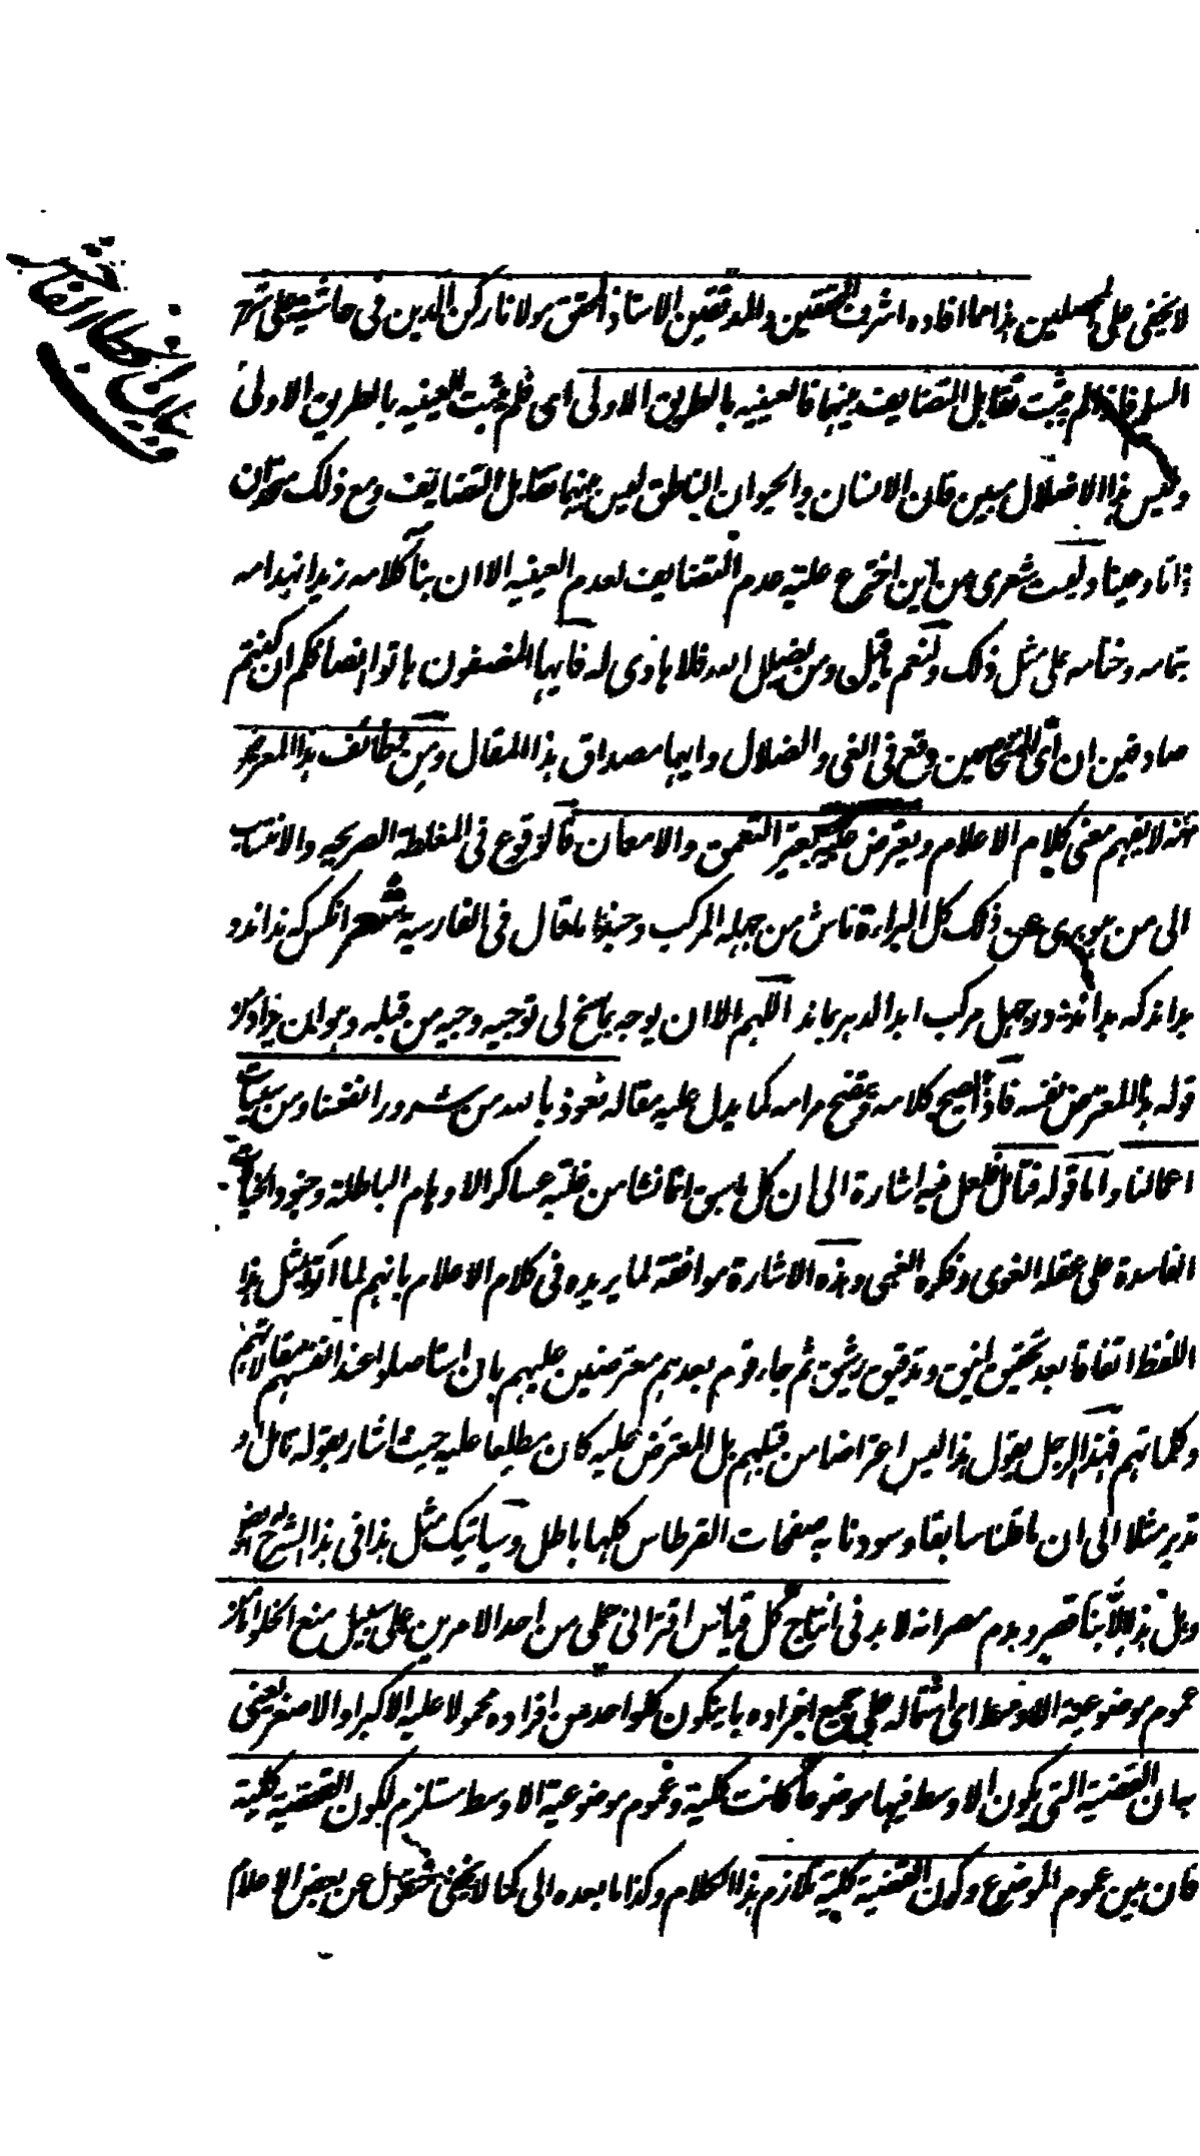 لا يخفى على المحصلين هذا مما افاده اشرف المحققين والمدققين الاستاذ المحقق مولانا ركن الدين فى حاشيته على شرح
السلم فاذا لم يثبت تقابل التضايف بينهما فالعينيه بالطريق الاولى اى فلم يثبت العينيه بالطريق الاولى
وليس هذا الا ضلال مبين فان الانسان والحيوان الناطق ليس بينهما تقابل التضايف ومع ذلك متحدان
ذاتا وعينا وليت شعرى من اين اخترع علتيه عدم التضايف لعدم العينيه الا ان بناء كلامه زيد انهدامه
بتمامه وختامه على مثل ذلك ولنعم ما قيل ومن يضلل الله فلا هادى له فايها المنصفون هاتوا انصافكم ان كنتم
صادقين ان اى المتخاصمين وقع فى الغى والضلال وايهما مصداق هذا المقال ومن وظائف هذا المعترض
انه لا يفهم معنى كلام الاعلام ويعترض عليه بغير التعمق والامعان فالوقوع فى المغلطة الصريحه والانتساب
الى من هو برى عن ذلك كل البراءة ناش من جهله المركب وحبذا ما قال فى الفارسيه شعر انكس كه نداند و
بداند كه بداند در جهل مركب ابد الدهر بماند اللهم الا ان يوجه بما سنح لى توجيه وجيه من قبله وهو ان
قوله هذا المعترض نفسه فاذا صح كلامه وتضح مرامه كما يدل عليه مقاله نعوذ بالله من شرور انفسنا ومن سيات
اعمالنا واما قوله فتامل فلعل فيه اشارة الى ان كل ما سبق انما نشا من غلبة عساكر الاوهام الباطلة وجنود الخيالات
الفاسدة على عقله الغوى وفكره الغبى وهذه الاشارة موافقة لما يريده فى كلام الاعلام بانهم لما اوردوا مثل هذا
اللفظ اتفاقا بعد تحقيق انيق وتدقيق رشيق ثم جاء قوم بعدهم معترضين عليهم بان استاصلوا عند انفسهم مقالاتهم
وكلماتهم فهذا الرجل يقول هذا ليس اعتراضا من قبلهم بل المعترض عليه كان مطلعا عليه حيث اشار بقوله تامل او
تدبر مثلا الى ان ما قلنا سابقا وسودنا به صفحات القرطاس كلها باطل وسياتيك مثل هذا فى هذا الشرح
ومثل هذا البناء قصر وهدم مصر انه لا بد فى انتاج كل قياس اقترانى حملى من احد الامرين على سبيل منع الخلو
عموم موضوعية الاوسط اى اشتماله على جميع افراده بان يكون كل واحد من افراده محمولا عليه الاكبر او الاصغر يعنى
بان القضية التى يكون الاوسط فيها موضوعا كانت كلية وعموم موضوعية الاوسط مستلزم لكون القضية كلية
فان بين عموم الموضوع وكون القضية كلية تلازم هذا الكلام وكذا ما بعده الى كما لا يخفى منقول عن بعض الاعلام